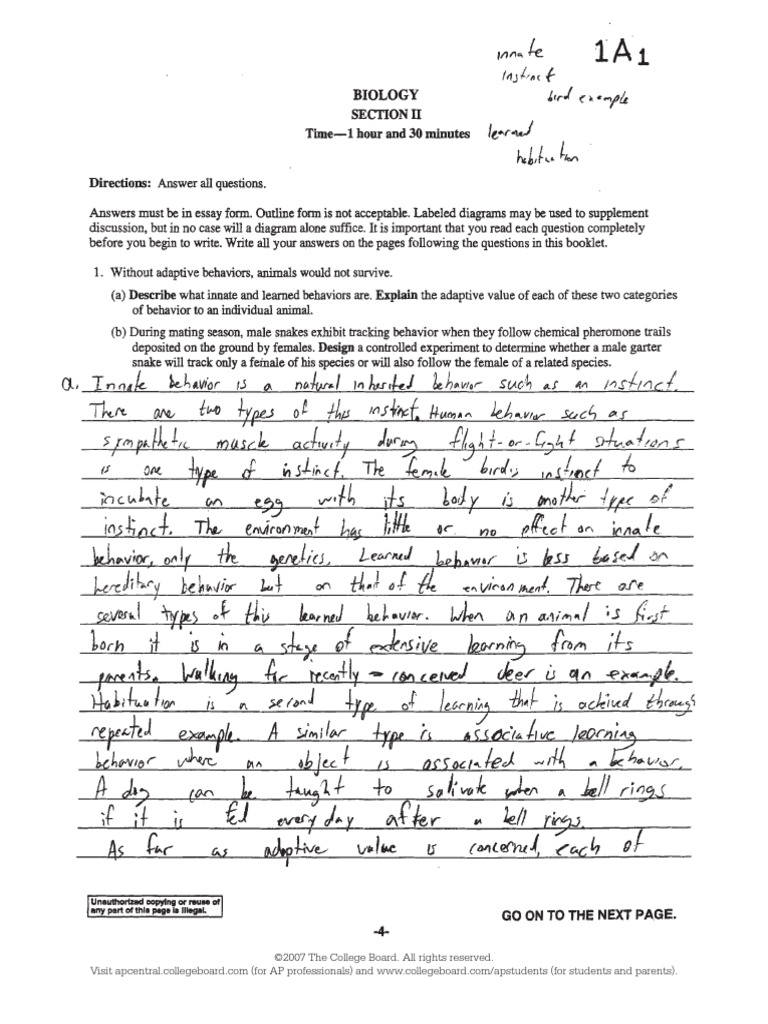 innate
1A1
instinct
bird example
BIOLOGY
SECTION II
Time—1 hour and 30 minutes
learned
habituation
Directions: Answer all questions.
Answers must be in essay form. Outline form is not acceptable. Labeled diagrams may be used to supplement
discussion, but in no case will a diagram alone suffice. It is important that you read each question completely
before you begin to write. Write all your answers on the pages following the questions in this booklet.
1. Without adaptive behaviors, animals would not survive.
(a) Describe what innate and learned behaviors are. Explain the adaptive value of each of these two categories
of behavior to an individual animal.
(b) During mating season, male snakes exhibit tracking behavior when they follow chemical pheromone trails
deposited on the ground by females. Design a controlled experiment to determine whether a male garter
snake will track only a female of his species or will also follow the female of a related species.
a. Innate behavior is a natural inherited behavior such as an instinct.
There are two types of this instinct. Human behavior such as
sympathetic muscle activity during flight-or-fight situations
is one type of instinct. The female bird's instinct to
incubate an egg with its body is another type of
instinct. The environment has little or no effect on innate
behavior, only the genetics. Learned behavior is less based on
hereditary behavior but on that of the environment. There are
several types of this learned behavior. When an animal is first
born it is in a stage of extensive learning from its
parents. Walking for recently-conceived deer is an example.
Habituation is a second type of learning that is achived through
repeated example. A similar type is associative learning
behavior where an object is associated with a behavior.
A dog can be taught to salivate when a bell rings
if it is fed everyday after a bell rings.
As far as adaptive value is concerned, each of
Unauthorized copying or reuse of
any part of this page is illegal.
GO ON TO THE NEXT PAGE.
-4-
©2007 The College Board. All rights reserved.
Visit apcentral.collegeboard.com (for AP professionals) and www.collegeboard.com/apstudents (for students and parents).